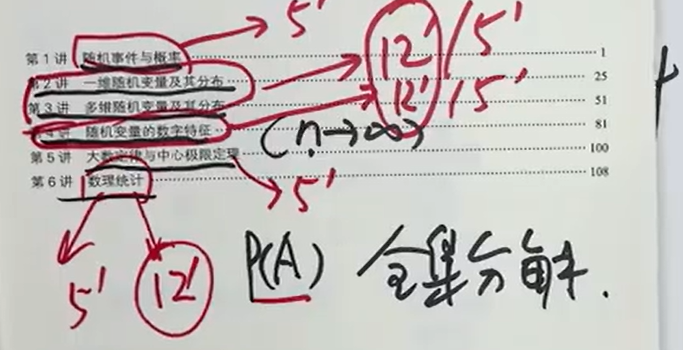 5'
第1讲 随机事件与概率 1
12' / 5'
第2讲 一维随机变量及其分布 25
12' / 5'
第3讲 多维随机变量及其分布 51
第4讲 随机变量的数字特征 81
(n→∞)
第5讲 大数定律与中心极限定理 100
第6讲 数理统计 108
5'
5' 12' P(A) 全集分解.